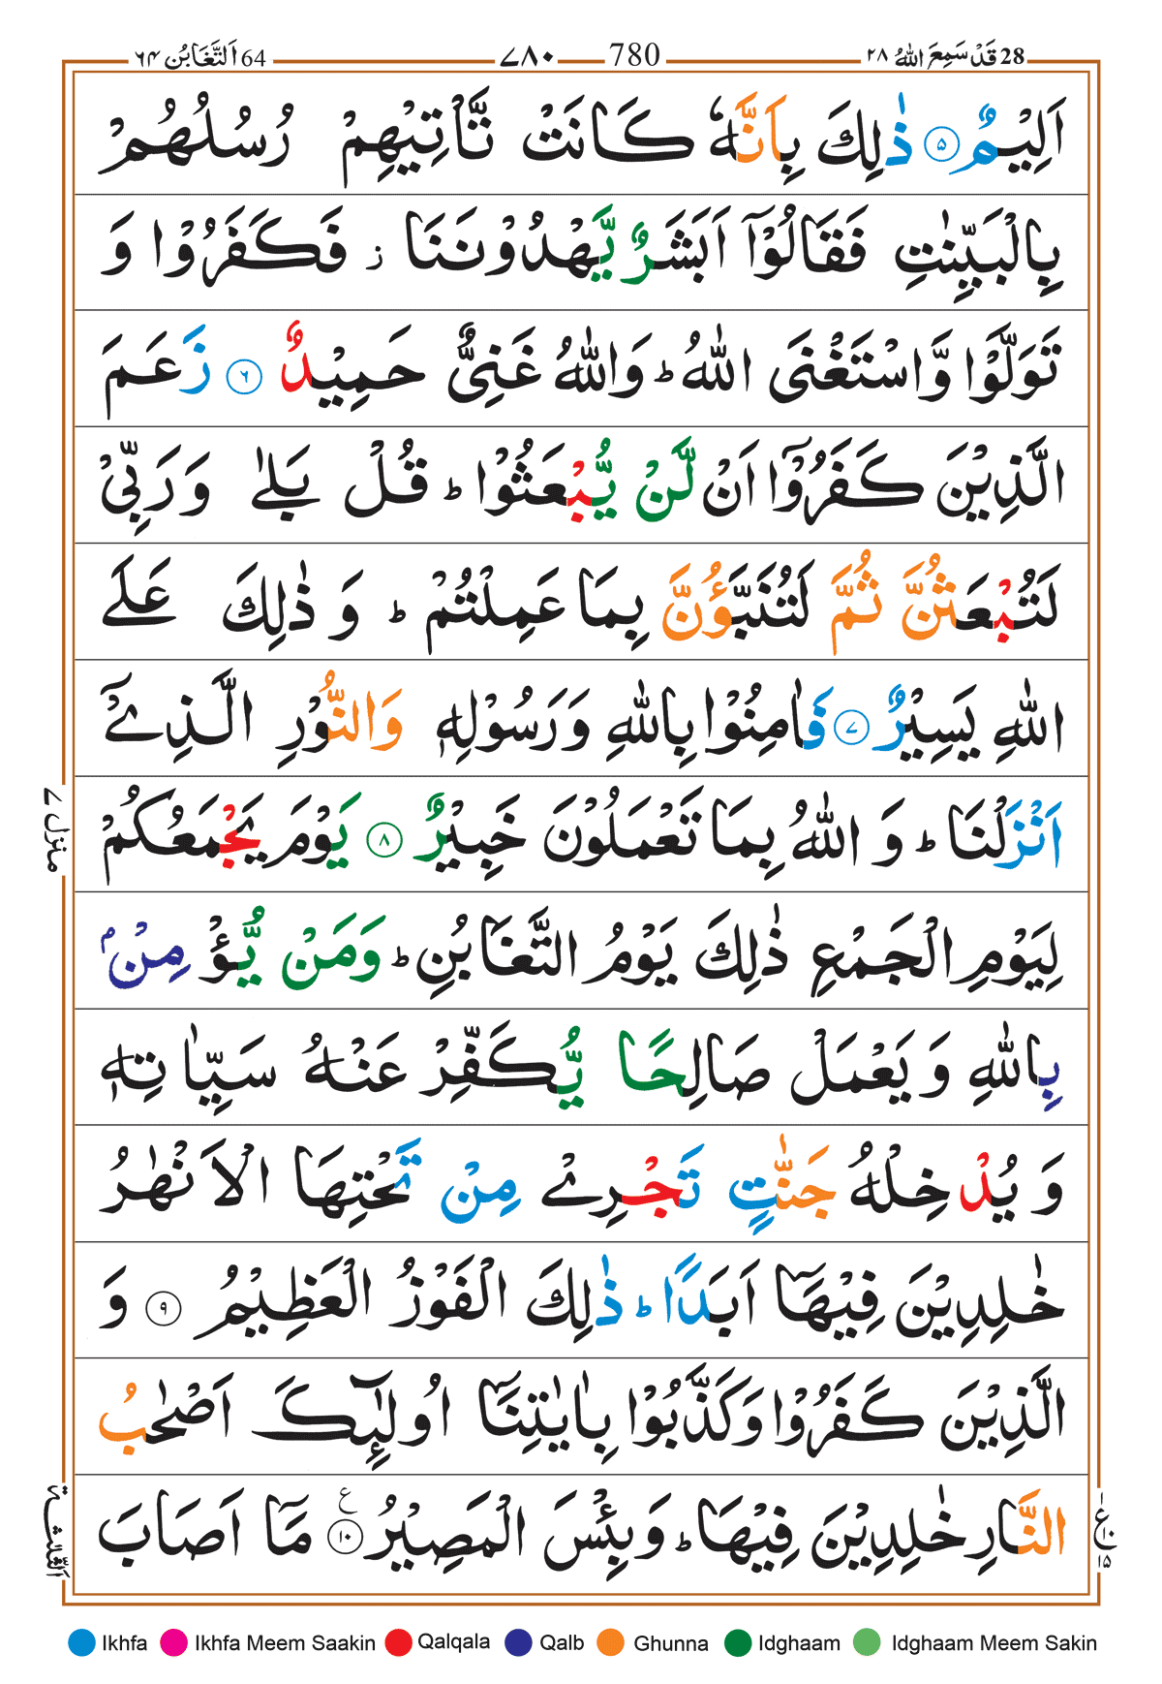 28 قَدْ سَمِعَ اللهُ ٢٨ 780 ٧٨٠ 64 اَلتَّغَابُن ٦٤
اَلِيْمٌ ٥ ذٰلِكَ بِاَنَّهٗ كَانَتْ تَّاْتِيْهِمْ رُسُلُهُمْ
بِالْبَيِّنٰتِ فَقَالُوْٓا اَبَشَرٌ يَّهْدُوْنَنَا ز فَكَفَرُوْا وَ
تَوَلَّوْا وَّاسْتَغْنَى اللهُ ؕ وَاللهُ غَنِىٌّ حَمِيْدٌ ٦ زَعَمَ
الَّذِيْنَ كَفَرُوْٓا اَنْ لَّنْ يُّبْعَثُوْا ؕ قُلْ بَلٰى وَرَبِّىْ
لَتُبْعَثُنَّ ثُمَّ لَتُنَبَّؤُنَّ بِمَا عَمِلْتُمْ ؕ وَ ذٰلِكَ عَلَے
اللهِ يَسِيْرٌ ٧ فَاٰمِنُوْا بِاللهِ وَرَسُوْلِهٖ وَالنُّوْرِ الَّذِےْٓ
اَنْزَلْنَا ؕ وَ اللهُ بِمَا تَعْمَلُوْنَ خَبِيْرٌ ٨ يَوْمَ يَجْمَعُكُمْ
لِيَوْمِ الْجَمْعِ ذٰلِكَ يَوْمُ التَّغَابُنِ ؕ وَمَنْ يُّؤْمِنْۢ
بِاللهِ وَ يَعْمَلْ صَالِحًا يُّكَفِّرْ عَنْهُ سَيِّاٰتِهٖ
وَ يُدْخِلْهُ جَنّٰتٍ تَجْرِےْ مِنْ تَحْتِهَا الْاَنْهٰرُ
خٰلِدِيْنَ فِيْهَآ اَبَدًا ؕ ذٰلِكَ الْفَوْزُ الْعَظِيْمُ ٩ وَ
الَّذِيْنَ كَفَرُوْا وَكَذَّبُوْا بِاٰيٰتِنَآ اُولٰٓئِكَ اَصْحٰبُ
النَّارِ خٰلِدِيْنَ فِيْهَا ؕ وَبِئْسَ الْمَصِيْرُ ١٠ ع مَآ اَصَابَ
منزل ٧
اَلثّٰلثة
ع ١٠ ١٥
Ikhfa Ikhfa Meem Saakin Qalqala Qalb Ghunna Idghaam Idghaam Meem Sakin